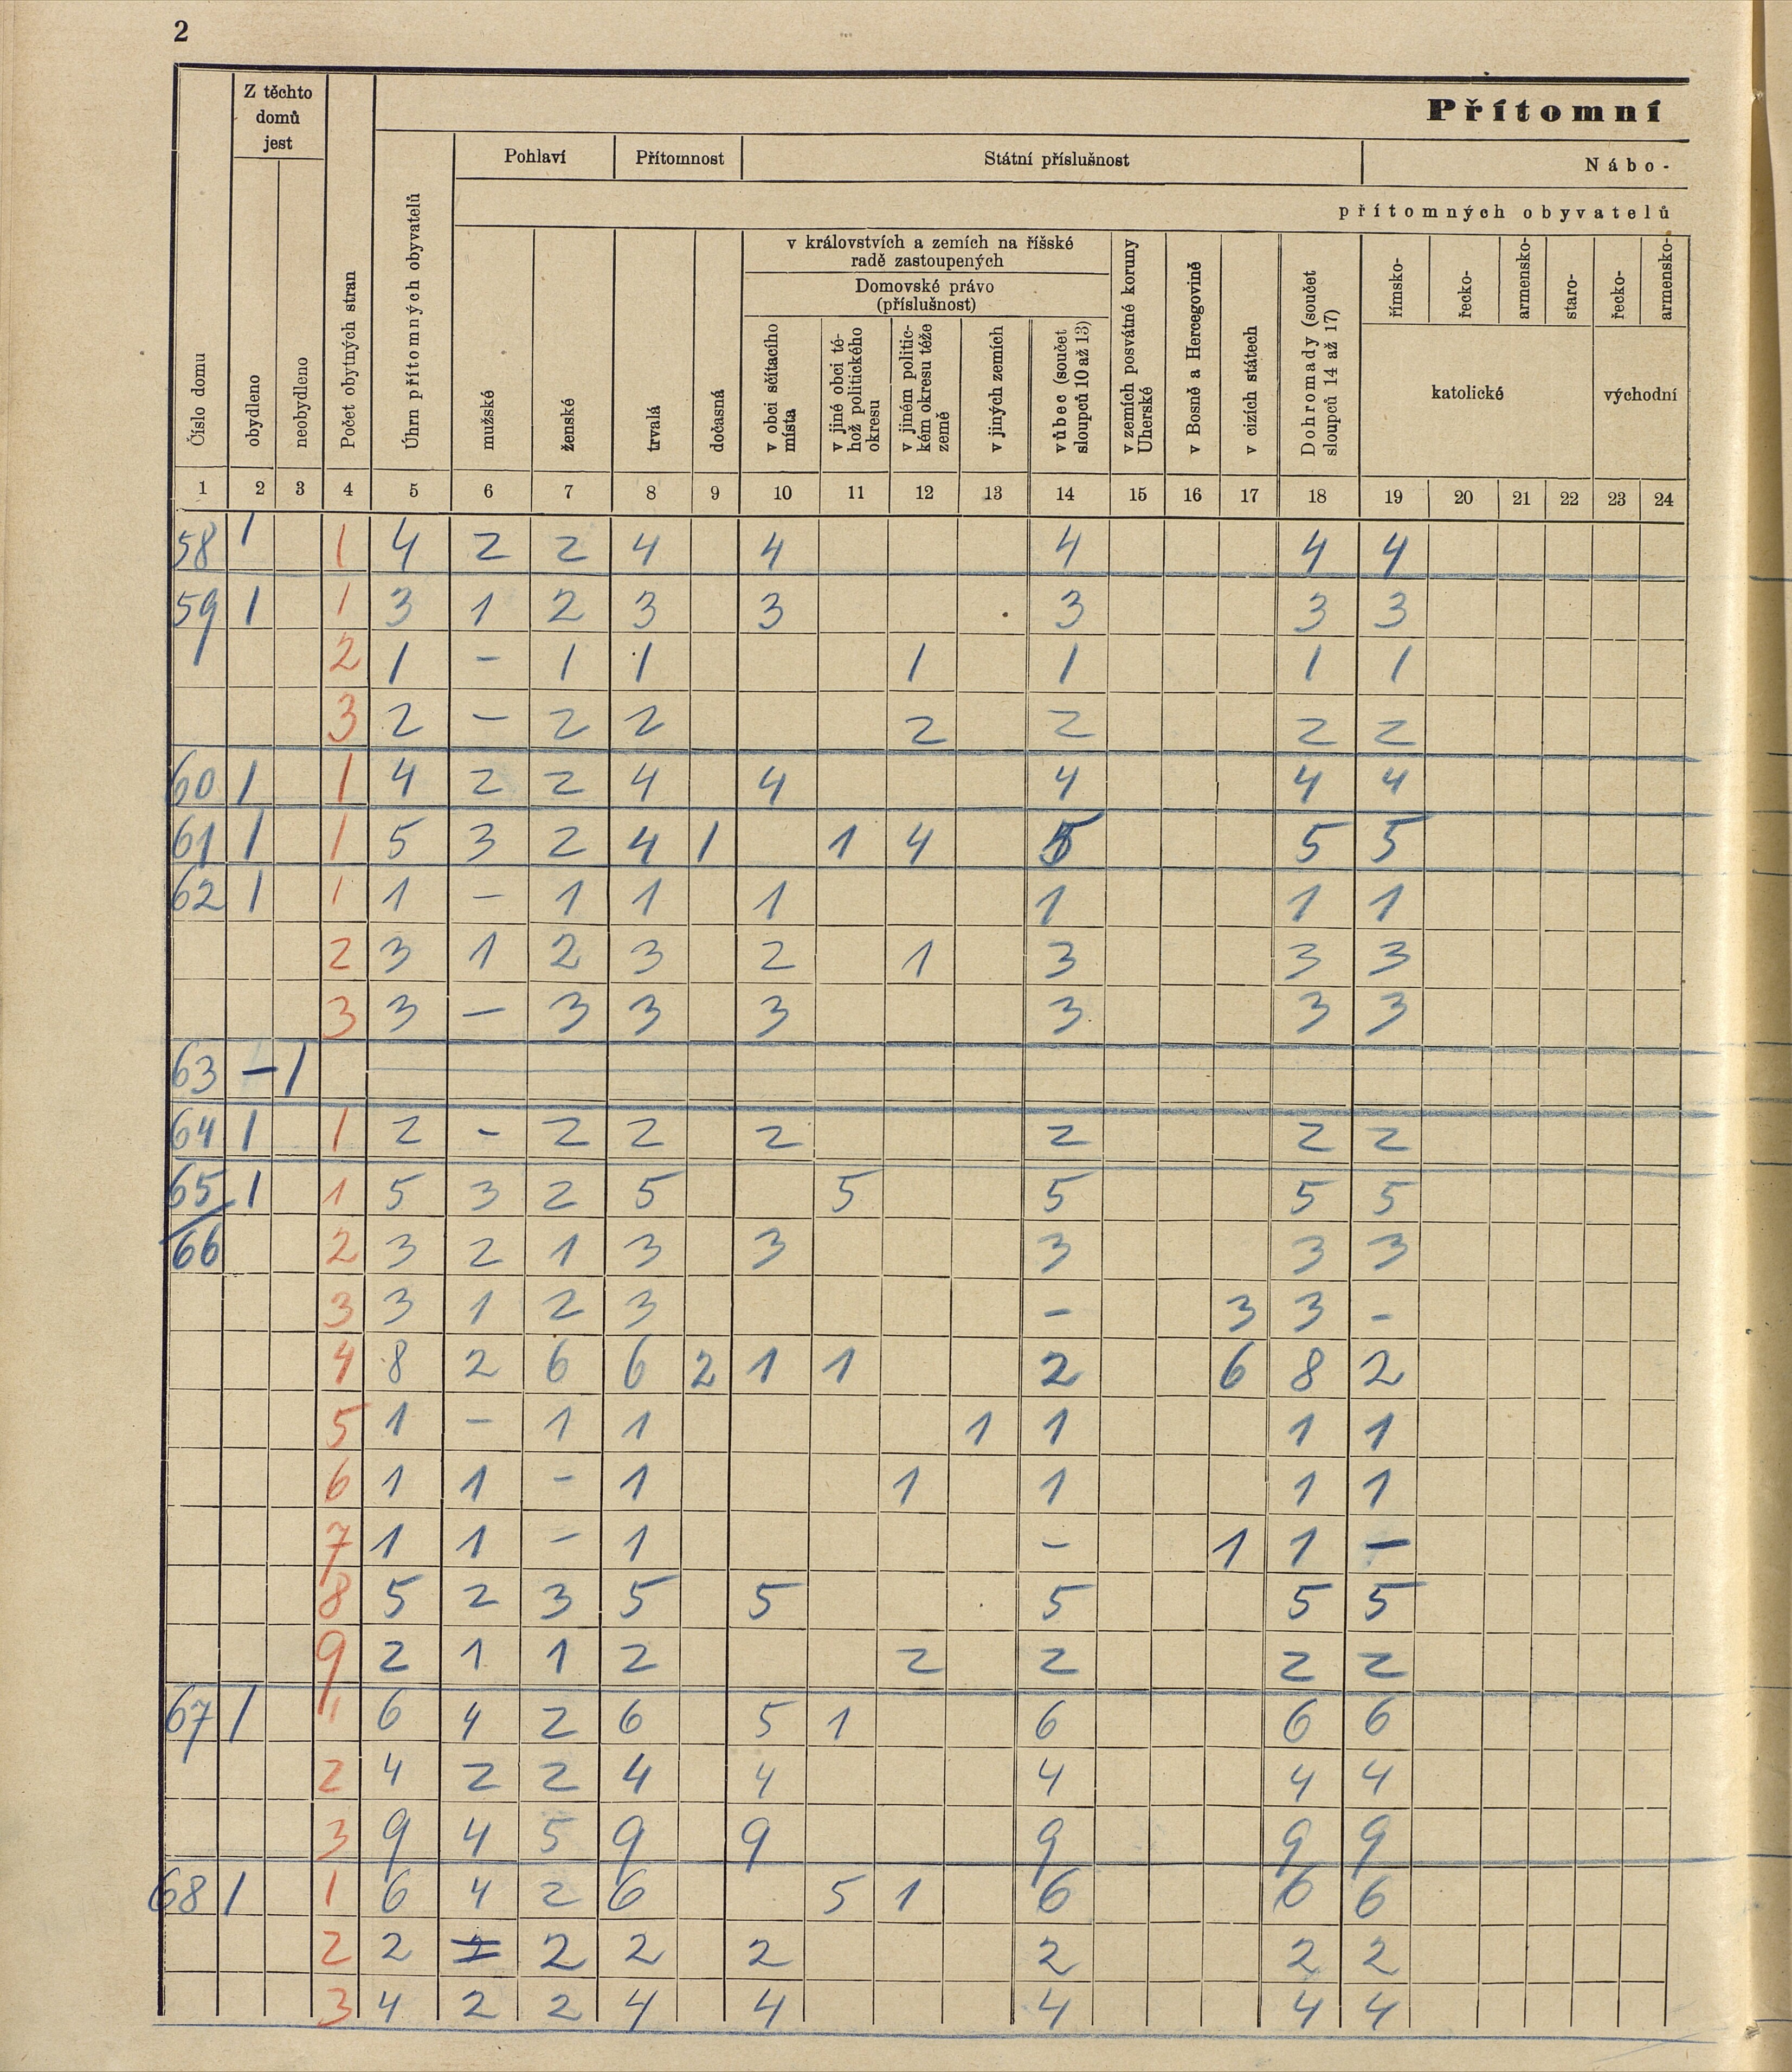 2
Z těchto domů jest
Přítomní
Pohlaví Přítomnost Státní příslušnost Nábo-
přítomných obyvatelů
v královstvích a zemích na říšské radě zastoupených
Domovské právo (příslušnost)
Číslo domu
obydleno
neobydleno
Počet obytných stran
Úhrn přítomných obyvatelů
mužské
ženské
trvalá
dočasná
v obci sčítacího místa
v jiné obci téhož politického okresu
v jiném politickém okresu téže země
v jiných zemích
vůbec (součet sloupců 10 až 13)
v zemích posvátné koruny Uherské
v Bosně a Hercegovině
v cizích státech
Dohromady (součet sloupců 14 až 17)
římsko- řecko- armensko- staro- řecko- armensko-
katolické východní
1 2 3 4 5 6 7 8 9 10 11 12 13 14 15 16 17 18 19 20 21 22 23 24
58 1 1 4 2 2 4 4 4 4 4
59 1 1 3 1 2 3 3 3 3 3
2 1 - 1 1 1 1 1 1
3 2 - 2 2 2 2 2 2
60 1 1 4 2 2 4 4 4 4 4
61 1 1 5 3 2 4 1 1 4 5 5 5
62 1 1 1 - 1 1 1 1 1 1
2 3 1 2 3 2 1 3 3 3
3 3 - 3 3 3 3 3 3
63 - 1
64 1 1 2 - 2 2 2 2 2 2
65 1 1 5 3 2 5 5 5 5 5
66 2 3 2 1 3 3 3 3 3
3 3 1 2 3 - 3 3 -
4 8 2 6 6 2 1 1 2 6 8 2
5 1 - 1 1 1 1 1 1
6 1 1 - 1 1 1 1 1
7 1 1 - 1 - 1 1 -
8 5 2 3 5 5 5 5 5
9 2 1 1 2 2 2 2 2
67 1 1 6 4 2 6 5 1 6 6 6
2 4 2 2 4 4 4 4 4
3 9 4 5 9 9 9 9 9
68 1 1 6 4 2 6 5 1 6 6 6
2 2 2 2 2 2 2 2
3 4 2 2 4 4 4 4 4